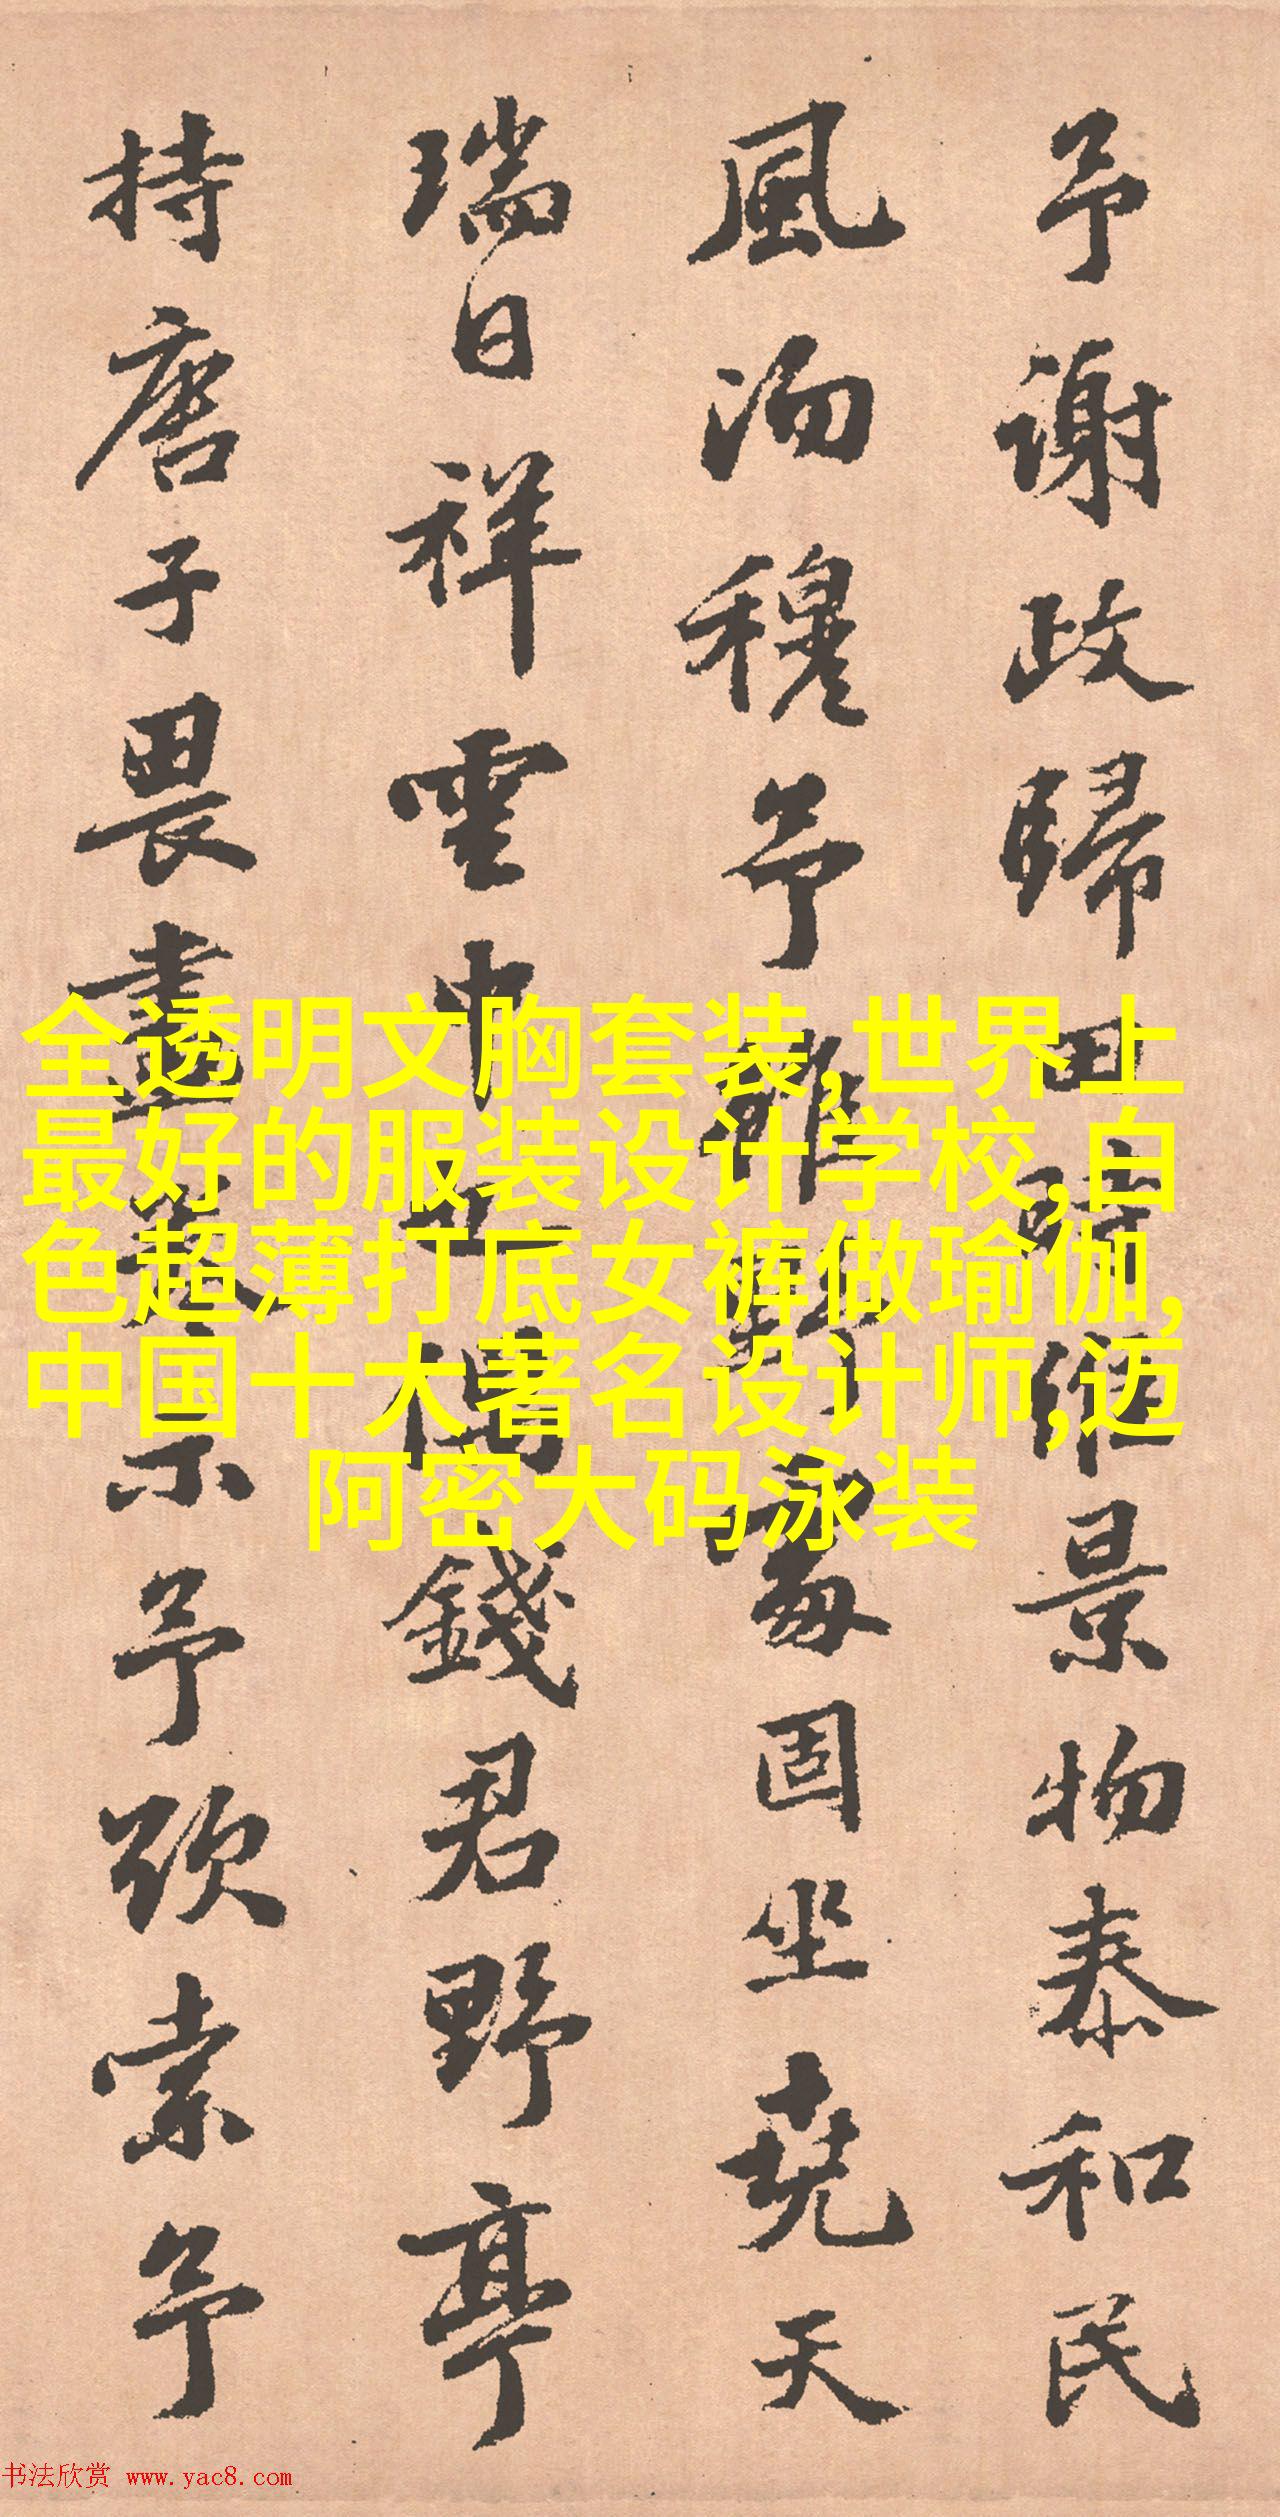 予謝政歸田時維景物泰和民
風沕穆予雖野處固坐堯天
瑞日祥雲中也偶錢君野亭
持唐子畏畫卷示予欲索予
全透明文胸套装,世界上
最好的服装设计学校,白
色超薄打底女裤做瑜伽,
中国十大著名设计师,迈
阿密大码泳装
书法欣赏 www.yac8.com